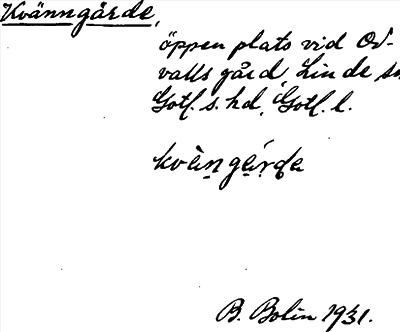 Kvänngårde,
öppen plats vid Od-
valls gård, Linde sn
Gotl. s. hd, Gotl. l.
kvän gårda
B. Bolin 1931.